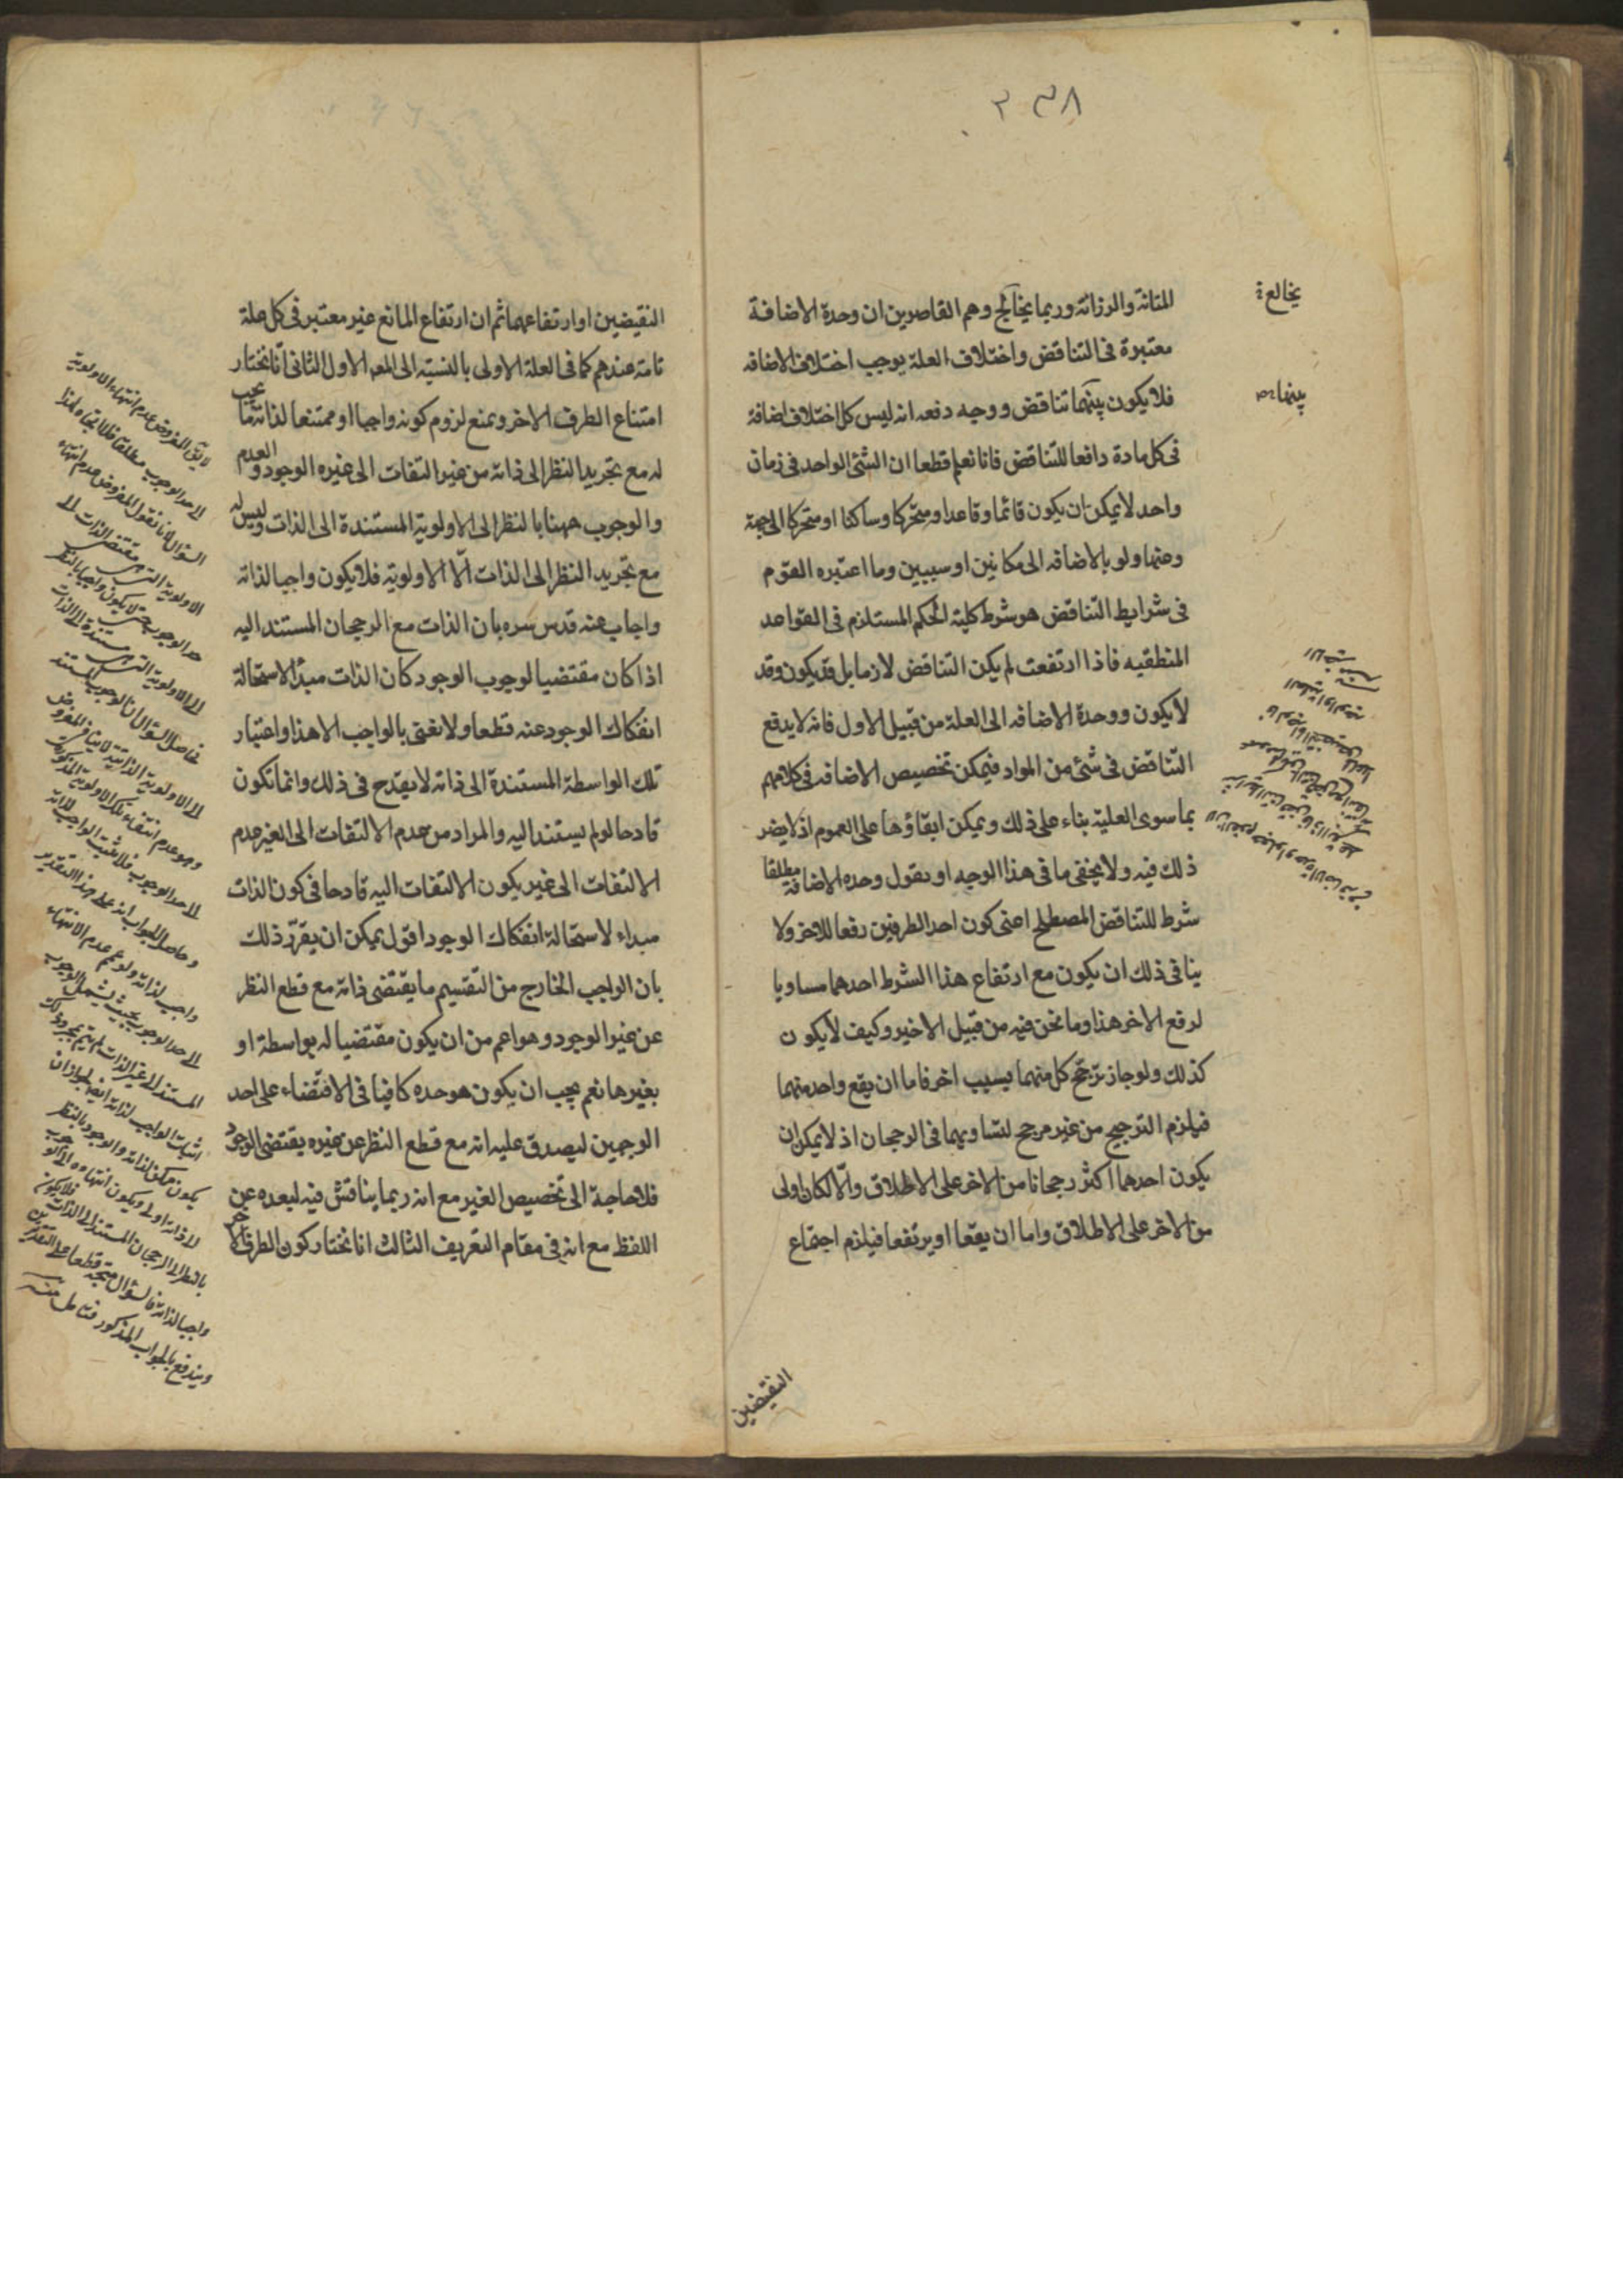 ٢٣٨
المتانة والرزانة وربما يخالج وهم القاصرين ان وحدة الاضافة
معتبرة فى التناقض واختلاف العلة يوجب اختلاف الاضافه
فلا يكون بينهما تناقض ووجه دفعه انه ليس كل اختلاف اضافة
فى كل مادة دافعا للتناقض فانا نعلم قطعا ان الشئ الواحد فى زمان
واحد لا يمكن ان يكون قائما وقاعدا ومتحركا وساكنا او متحركا الى جهة
وعنها ولو بالاضافه الى مكانين او سببين وما اعتبره القوم
فى شرايط التناقض هو شرط كلية الحكم المستلزم فى القواعد
المنطقيه فاذا ارتفعت لم يكن التناقض لازما بل قد يكون وقد
لا يكون ووحدة الاضافه الى العلة من قبيل الاول فانه لا يدفع
التناقض فى شئ من المواد فيمكن تخصيص الاضافه فى كلامهم
بما سوى العلية بناء على ذلك ويمكن ابقاؤها على العموم اذ لا يضر
ذلك فيه ولا يخفى ما فى هذا الوجه او نقول وحده الاضافة مطلقا
شرط للتناقض المصطلح اعنى كون احد الطرفين رفعا للاخر ولا
ينافى ذلك ان يكون مع ارتفاع هذا الشرط احدهما مساويا
لرفع الاخر هذا وما نحن فيه من قبيل الاخير وكيف لا يكون
كذلك ولو جاز ترجح كل منهما بسبب اخر فاما ان يقع واحد منهما
فيلزم الترجيح من غير مرجح لتساويهما فى الرجحان اذ لا يمكن ان
يكون احدهما اكثر رجحانا من الاخر على الاطلاق والّا لكان اولى
من الاخر على الاطلاق واما ان يقعا او يرتفعا فيلزم اجتماع
النقيضين
يخالع
بينهما
النقيضين او ارتفاعهما ثم ان ارتفاع المانع غير معتبر فى كل علة
تامة عندهم كما فى العلة الاولى بالنسبة الى المعه الاول الثانى انّا نختار
امتناع الطرف الاخر ونمنع لزوم كونه واجبا او ممتنعا لذاته ما يجب
له مع تجريد النظر الى ذاته من غير التفات الى غيره الوجود و العدم
والوجوب ههنا بالنظر الى الاولوية المستندة الى الذات وليس له
مع تجريد النظر الى الذات الّا الاولوية فلا يكون واجبا لذاته
واجاب عنه قدس سره بان الذات مع الرجحان المستند اليه
اذا كان مقتضيا لوجوب الوجود كان الذات مبدأ لاستحالة
انفكاك الوجود عنه قطعا ولا نعنى بالواجب الا هذا واعتبار
تلك الواسطة المستندة الى ذاته لا يقدح فى ذلك وانما تكون
قادحا لو لم يستند اليه والمراد من عدم الالتفات الى الغير عدم
الالتفات الى غير يكون الالتفات اليه قادحا فى كون الذات
مبداء لاستحالة انفكاك الوجود اقول يمكن ان يقرّر ذلك
بان الواجب الخارج من التقسيم ما يقتضى ذاته مع قطع النظر
عن غير الوجود وهو اعم من ان يكون مقتضيا له بواسطة او
بغيرها نعم يجب ان يكون هو وحده كافيا فى الاقتضاء على احد
الوجهين ليصدق عليه انه مع قطع النظر عن غيره يقتضى الوجود
فلا حاجة الى تخصيص الغير مع انه ربما يناقش فيه لبعده عن
اللفظ مع انه فى مقام التعريف الثالث انا نختار كون الطرف الاخر
السؤال لانا نقول المفروض عدم انتهاء
الاولوية التى هى مقتضى الذات الى
حد الوجوب حتى لا يكون واجبا بالنظر
الى الاولوية التى هى مستندة الى الذات
فحاصل السؤال ان الوجوب المستند
الى الاولوية الذاتية لا ينافى المفروض
وهو عدم انتهاء تلك الاولوية المذكورة
الى حد الوجوب فلا يثبت الواجب لذاته
وحاصل الجواب انه على هذا التقدير
واجب لذاته ولو عم عدم الانتهاء
الى حد الوجوب بحيث يشمل الوجوب
المستند الى غير الذات لم يتم بمجرد ذلك
اثبات الواجب لذاته ايضا لجواز ان
يكون ممكن لذاته والوجود بالنظر
لا ذاته اولى ويكون انتهاءه الى الوجوب
بالنظر الى الرجحان المستند الى الذات فلا يكون
واجبا لذاته فالسؤال متجه قطعا على التقديرين
ويندفع بالجواب المذكور فتامل منه